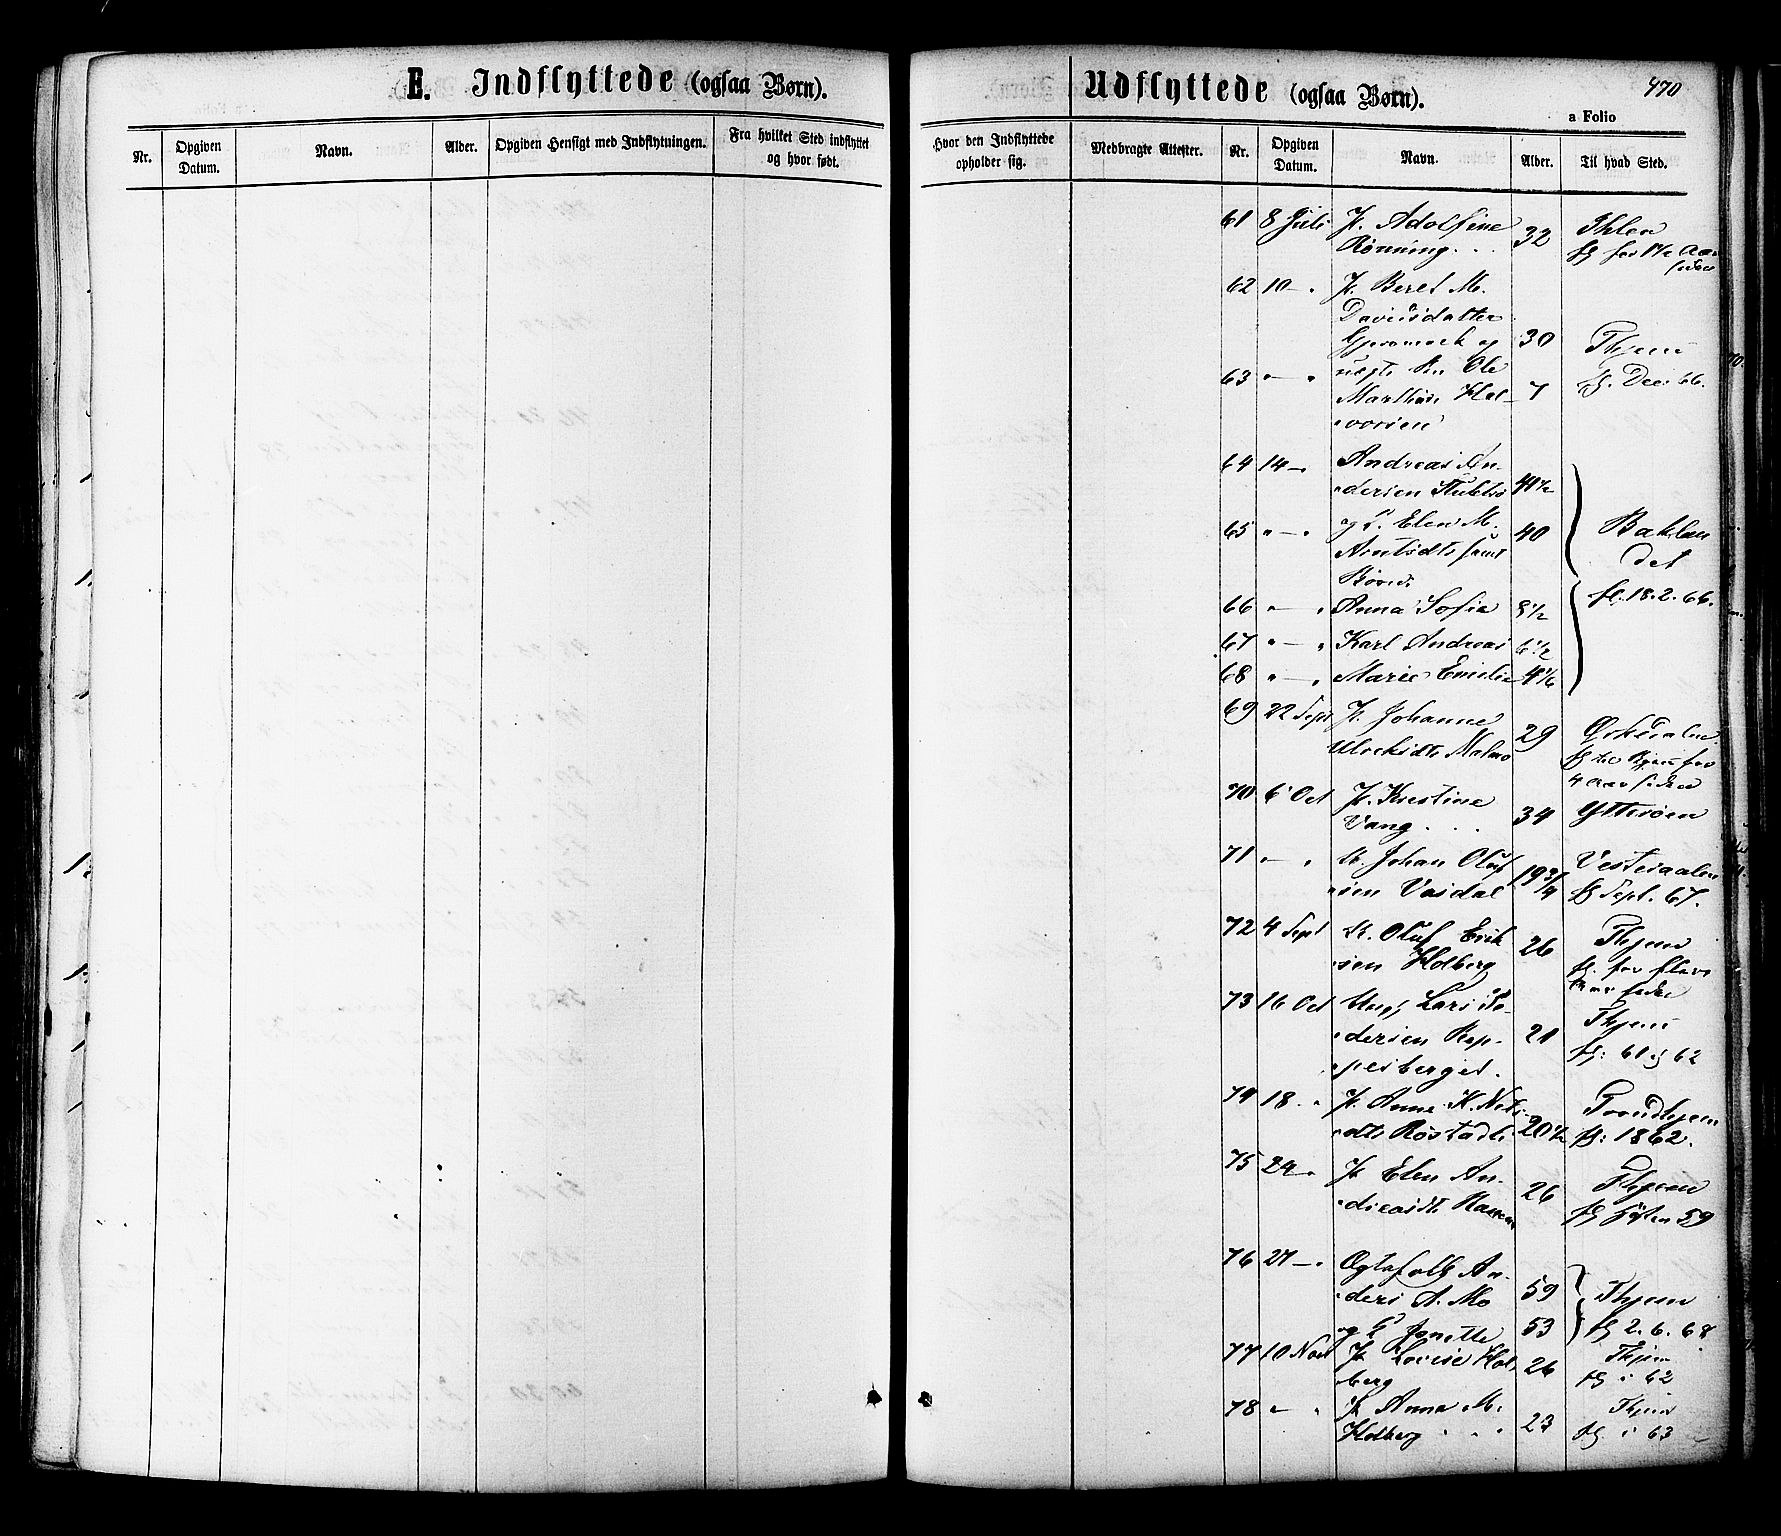 E. Indflyttede (ogsaa Børn).
Nr.
Opgiven Datum.
Navn.
Alder.
Opgiven Hensigt med Indflytningen.
Fra hvilket Sted indflyttet og hvor født.
Udflyttede (ogsaa Børn).
470
a Folio
Hvor den Indflyttede opholder sig.
Medbragte Attester.
Nr.
Opgiven Datum.
Navn.
Alder.
Til hvad Sted.
61 8 Juli P. Adolfine 32 Ihlen
Rønning . . fl for 1½ Aar
siden
62 10 — " P. Beret M.
Davidsdatter
og 30 Thjem
63 " — " Ole fl. Dec. 66.
7
vorsen
64 14 — " Andreas An-
dersen 41½
65 " — " og H. Elen M. 40 Baklan
Arntsdt samt det
Børn:
66 " — " Anna Sofie 8½ fl. 18.2.66.
67 " — " Karl Andreas 6½
68 " — " Marie Emilie 4½
69 22 Sept P. Johanne 29
Malmo
4 Aar siden
70 6 Oct P. Kristine 34 Ytterøen
Vang . . .
71 " — " Johan Oluf 19¾ Vesteraalen
sen Vasdal fl Sept. 67.
72 4 Sept Oluf Erik 26 Thjem
sen Holberg fl. for flere
Aar siden
73 16 Oct Ung. Lars Pe- 21 Thjem
dersen Rep- fl: 61 og 62
pesberget.
74 18 — " P. Anne K. Nils- 20½ Trondhjem
dt Røstad fl: 1862.
75 24 — " P. Elen An- 26 Thjem
dreasdt fl høsten 59
76 27 — " Ægtefolk An-
ders A. Mo 59 Thjem
og H Jonette 53 fl 2.6.68
77 10 Novb P. Lovise Hol- 26 Thjem
berg fl i 62
78 " — " P. Anna M. 23 Thjem
Holberg . . . fl. i 63